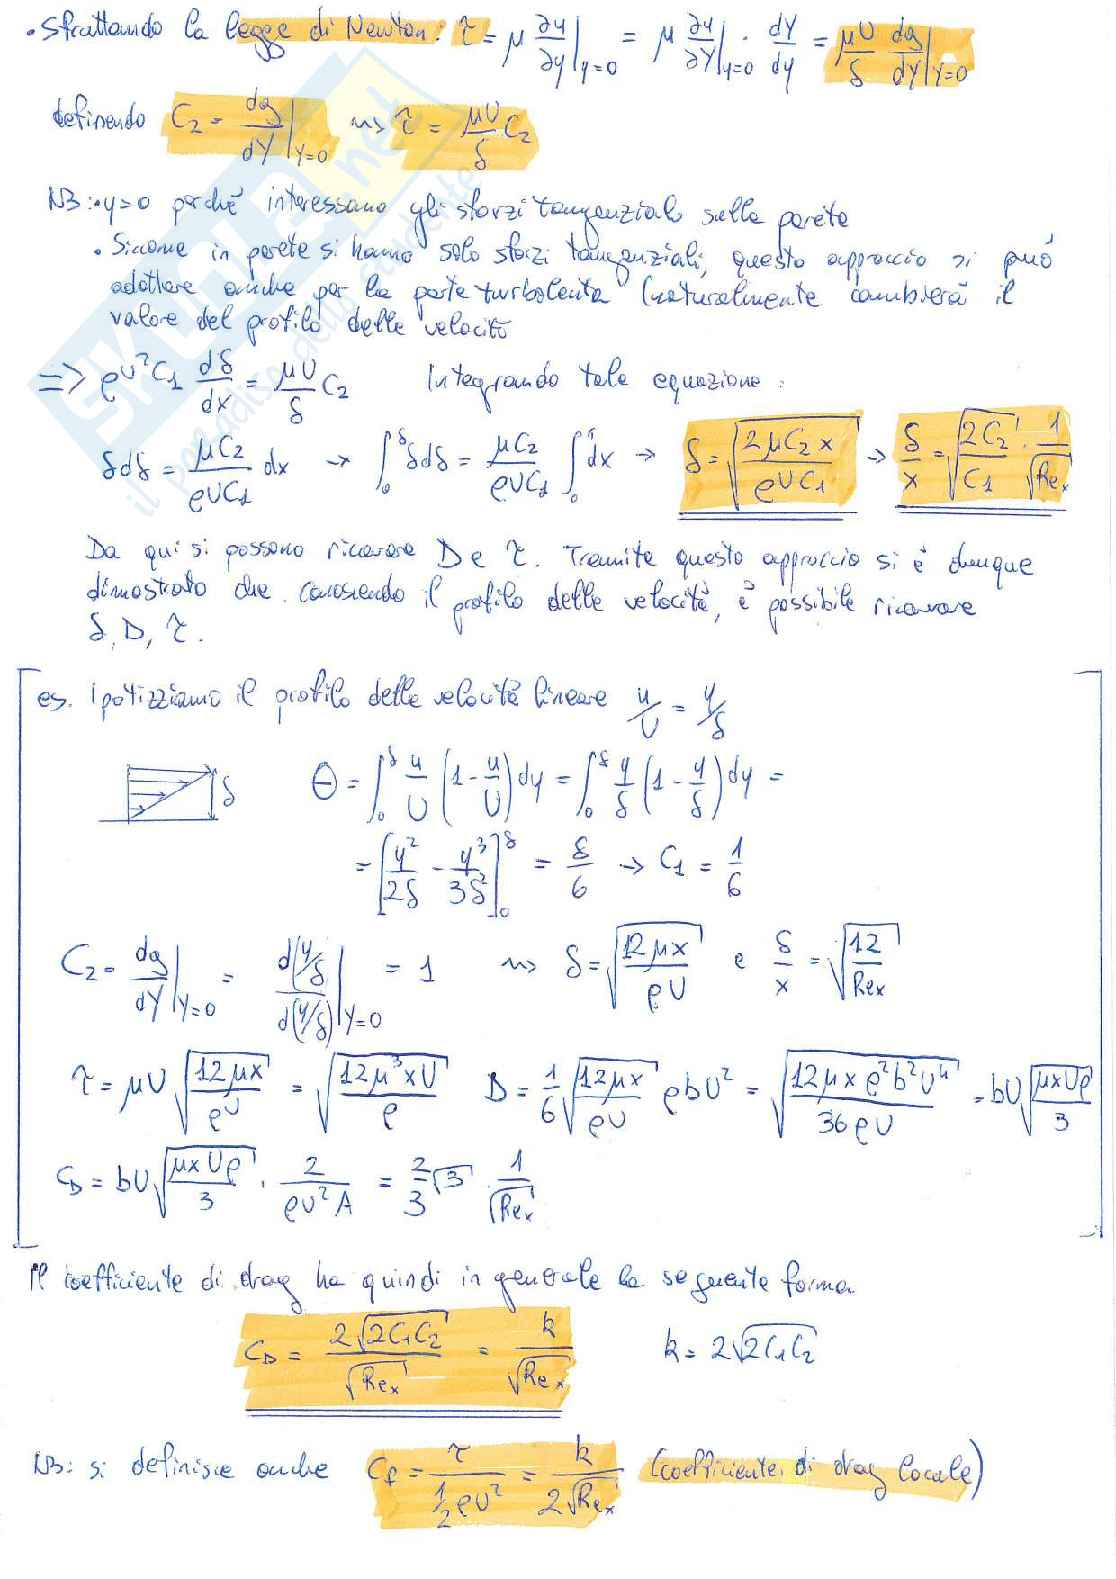 • Sfruttando la legge di Newton: τ = μ ∂u/∂y|y=0 = μ ∂u/∂Y|y=0 · dY/dy = μU/δ dg/dY|Y=0
definendo C₂ = dg/dY|Y=0 ⇝ τ = μU/δ C₂
NB: • y=0 perché interessano gli sforzi tangenziali sulla parete
• Siccome in parete si hanno solo sforzi tangenziali, questo approccio si può
adottare anche per la parte turbolenta (naturalmente cambierà il
valore del profilo delle velocità
=> ρU²C₁ dδ/dx = μU/δ C₂ Integrando tale equazione:
δdδ = μC₂/ρUC₁ dx → ∫₀^δ δdδ = μC₂/ρUC₁ ∫₀ dx → δ = √(2μC₂x/ρUC₁) → δ/x = √(2C₂/C₁) · 1/√Reₓ
Da qui si possono ricavare D e τ. Tramite questo approccio si è dunque
dimostrato che conoscendo il profilo delle velocità, è possibile ricavare
δ, D, τ.
es. Ipotizziamo il profilo delle velocità lineare u/U = y/δ
δ
Θ = ∫₀^δ u/U (1 - u/U) dy = ∫₀^δ y/δ (1 - y/δ) dy =
= [y²/2δ - y³/3δ²]₀^δ = δ/6 → C₁ = 1/6
C₂ = dg/dY|Y=0 = d(y/δ)/d(y/δ)|Y=0 = 1 ⇝ δ = √(12μx/ρU) e δ/x = √(12/Reₓ)
τ = μU √(12μx/ρU) = √(12μ³xU/ρ) D = 1/6 √(12μx/ρU) ρbU² = √(12μxρ²b²U⁴/36ρU) = bU√(μxUρ/3)
C_D = bU√(μxUρ/3) · 2/ρU²A = 2/3 √3 · 1/√Reₓ
Il coefficiente di drag ha quindi in generale la seguente forma
C_D = 2√(2C₁C₂)/√Reₓ = k/√Reₓ k = 2√(2C₁C₂)
NB: si definisce anche C_f = τ/(½ρU²) = k/2√Reₓ (coefficiente di drag locale)
SKUOLA.net
il paradiso dello studente